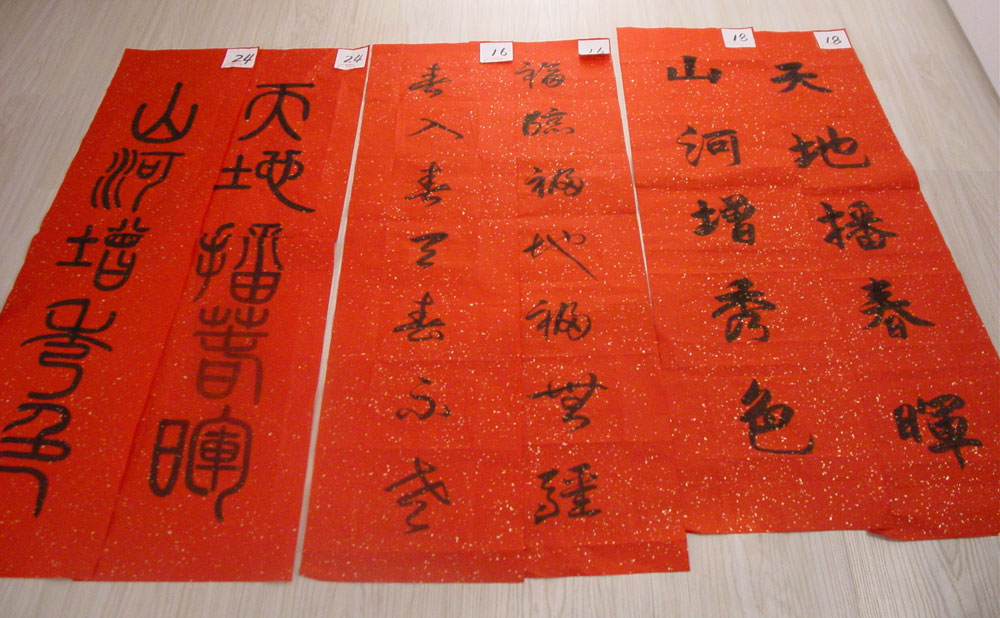 18
天地播春暉
18
山河增秀色
16
福臨福地福無疆
16
春入春天春不老
24
天地播春暉
24
山河增秀色